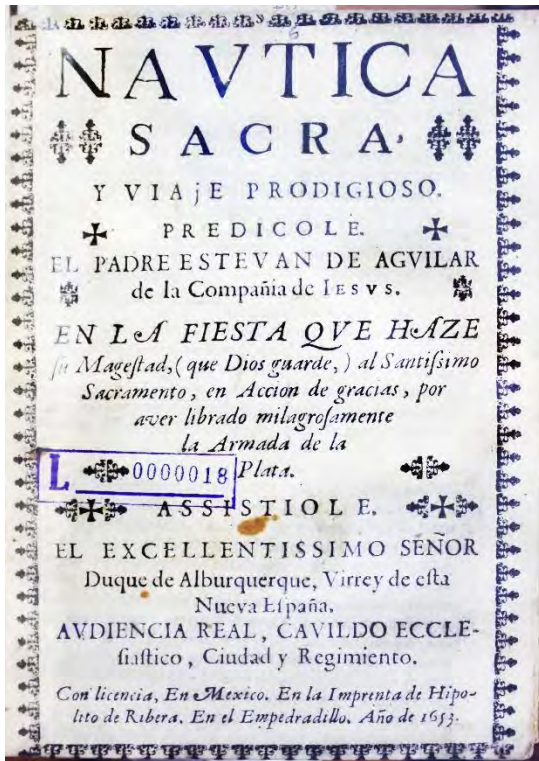 NAVTICA
SACRA,
Y VIAjE PRODIGIOSO.
PREDICOLE.
EL PADRE ESTEVAN DE AGVILAR
de la Compañia de IESVS.
EN LA FIESTA QVE HAZE
su Mageſtad, (que Dios guarde,) al Santiſsimo
Sacramento, en Accion de gracias, por
aver librado milagroſamente
la Armada de la
Plata.
L 0000018
ASSISTIOLE.
EL EXCELLENTISSIMO SEÑOR
Duque de Alburquerque, Virrey de eſta
Nueva Eſpaña,
AVDIENCIA REAL, CAVILDO ECCLE-
ſiaſtico, Ciudad y Regimiento.
Con licencia, En Mexico. En la Imprenta de Hipo-
lito de Ribera. En el Empedradillo. Año de 1653.